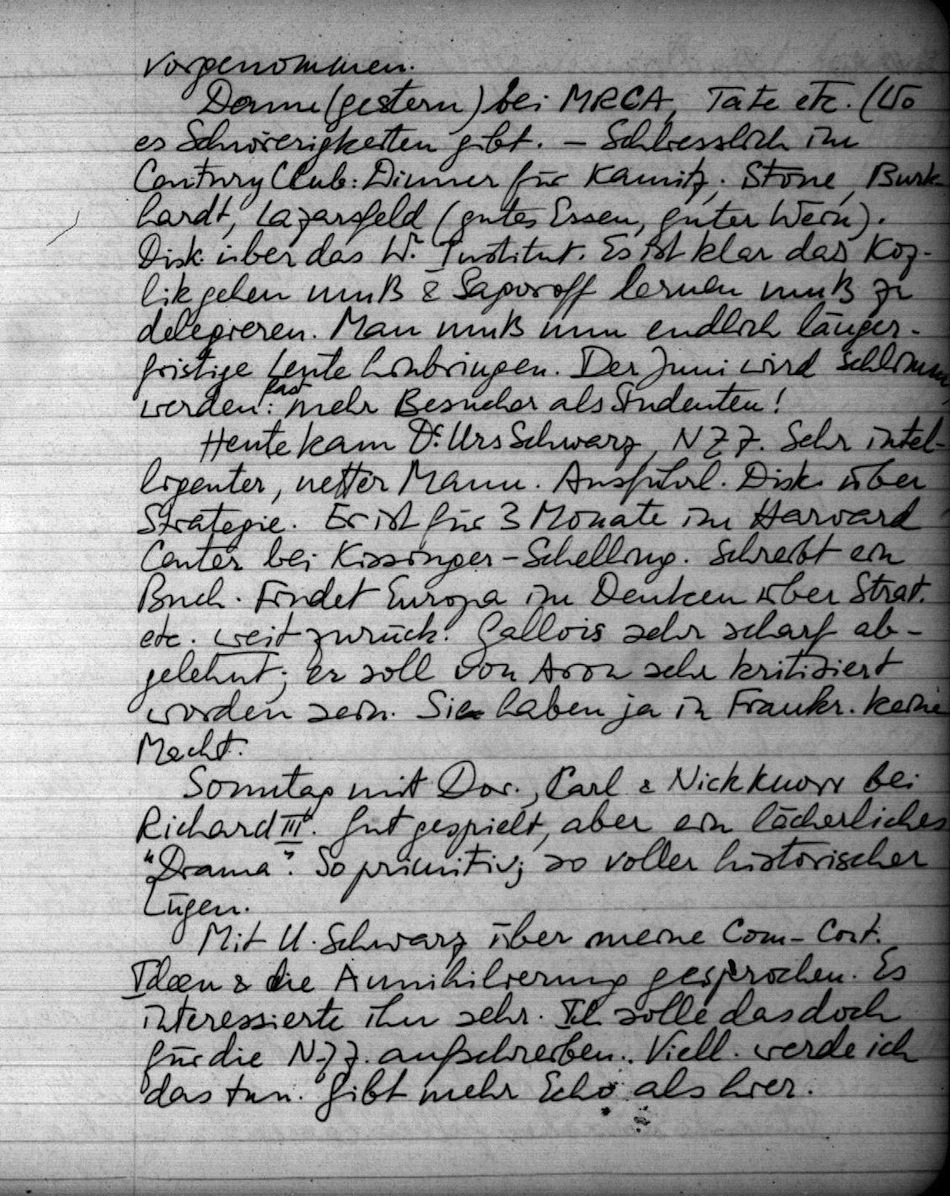 vorgenommen.
Dann (gestern) bei MRCA, Tate etc. (Wo
es Schwierigkeiten gibt. – Schliesslich im
Century Club: Dinner für Kamitz. Stone, Burk-
hardt, Lazarsfeld (gutes Essen, guter Wein).
Disk. über das W. Institut. Es ist klar das Koz-
lik gehen muß & Sagoroff lernen muß zu
delegieren. Man muß nun endlich länger-
fristige Leute hinbringen. Der Juni wird schlimm
werden: fast mehr Besucher als Studenten!
Heute kam Dr. Urs Schwarz, NZZ. Sehr intel-
ligenter, netter Mann. Ausführl. Disk. über
Strategie. Er ist für 3 Monate im Harvard
Center bei Kissinger–Schelling. Schreibt ein
Buch. Findet Europa im Denken über Strat.
etc. weit zurück. Gallois sehr scharf ab-
gelehnt; er soll von Aron sehr kritisiert
worden sein. Sie haben ja in Frankr. keine
Macht.
Sonntag mit Dor., Carl & Nick Knorr bei
Richard III. Gut gespielt, aber ein lächerliches
"Drama". So primitiv; so voller historischer
Lügen.
Mit U. Schwarz über meine Com-Cort.
Ideen & die Annihilierung gesprochen. Es
interessierte ihn sehr. Ich solle das doch
für die NZZ. aufschreiben. Viell. werde ich
das tun. Gibt mehr Echo als hier.